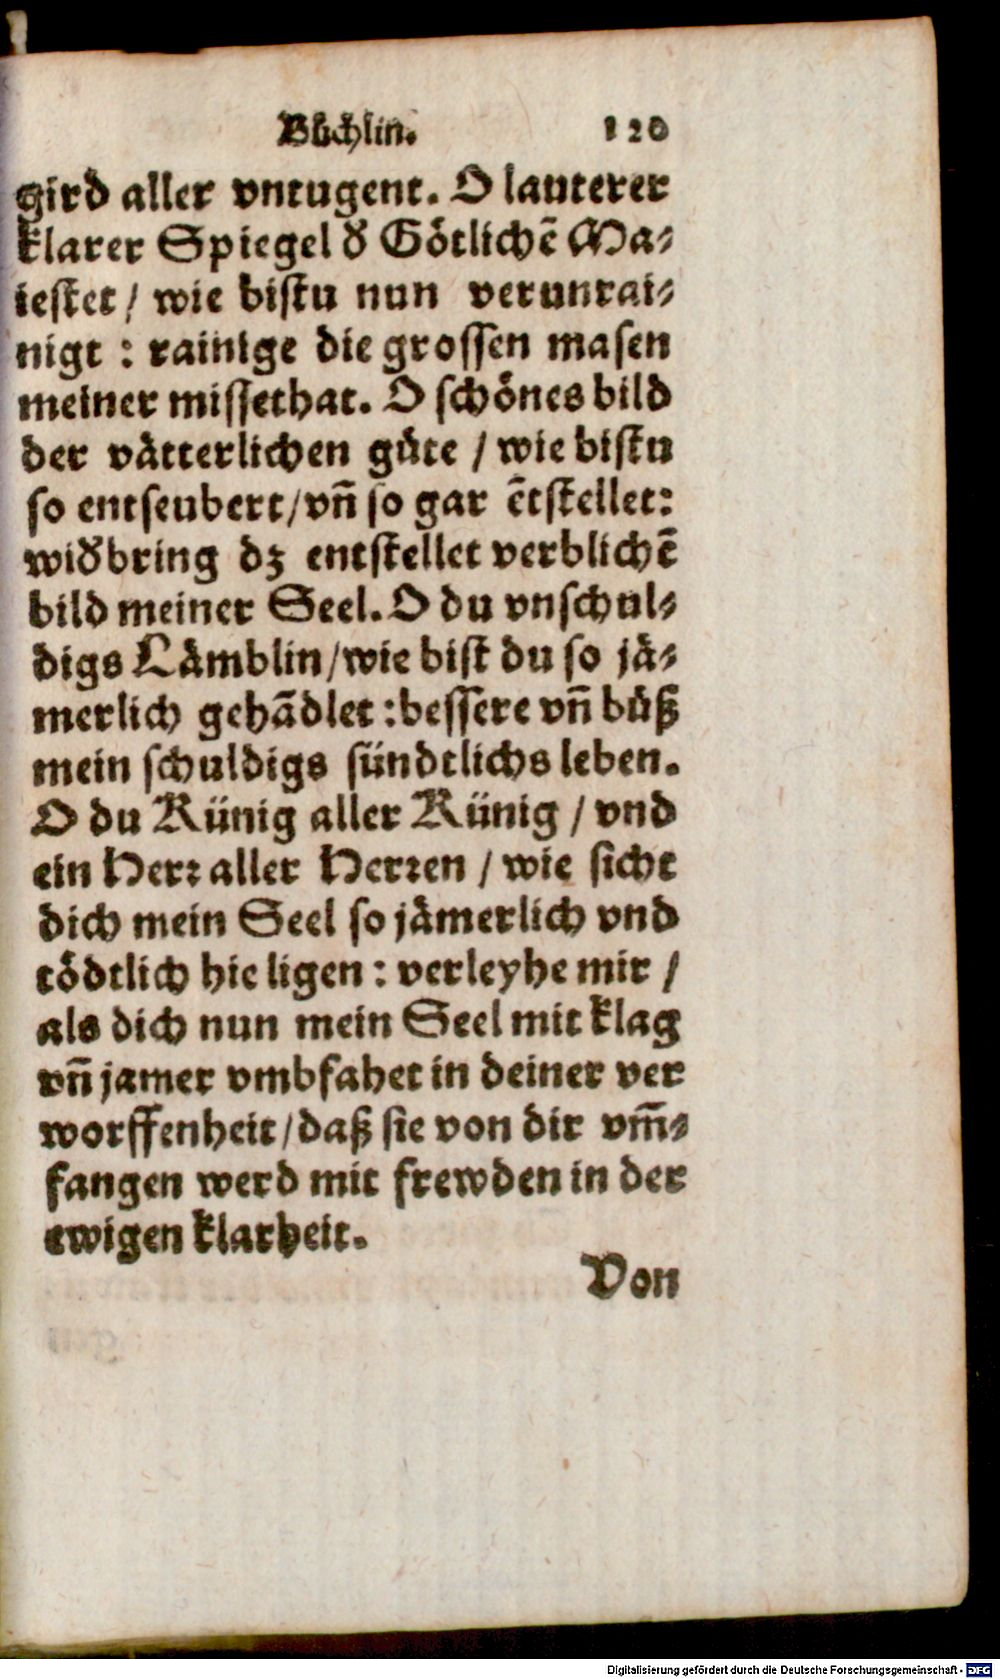 Bůchlin. 120
gird aller vntugent. O lauterer
klarer Spiegel d̕ Götlichē Ma⸗
iestet / wie bistu nun verunrai⸗
nigt : rainige die grossen masen
meiner missethat. O schönes bild
der vätterlichen güte / wie bistu
so entseubert / vñ so gar ētstellet:
wid̕bring dz entstellet verblichē
bild meiner Seel. O du vnschul⸗
digs Lämblin / wie bist du so jä⸗
merlich gehādlet : bessere vñ büß
mein schuldigs sündtlichs leben.
O du Künig aller Künig / vnd
ein Herr aller Herren / wie sicht
dich mein Seel so jämerlich vnd
tödtlich hie ligen : verleyhe mir /
als dich nun mein Seel mit klag
vñ jamer vmbfahet in deiner ver
worffenheit / daß sie von dir vm̃⸗
fangen werd mit frewden in der
ewigen klarheit.
Von
Digitalisierung gefördert durch die Deutsche Forschungsgemeinschaft - DFG